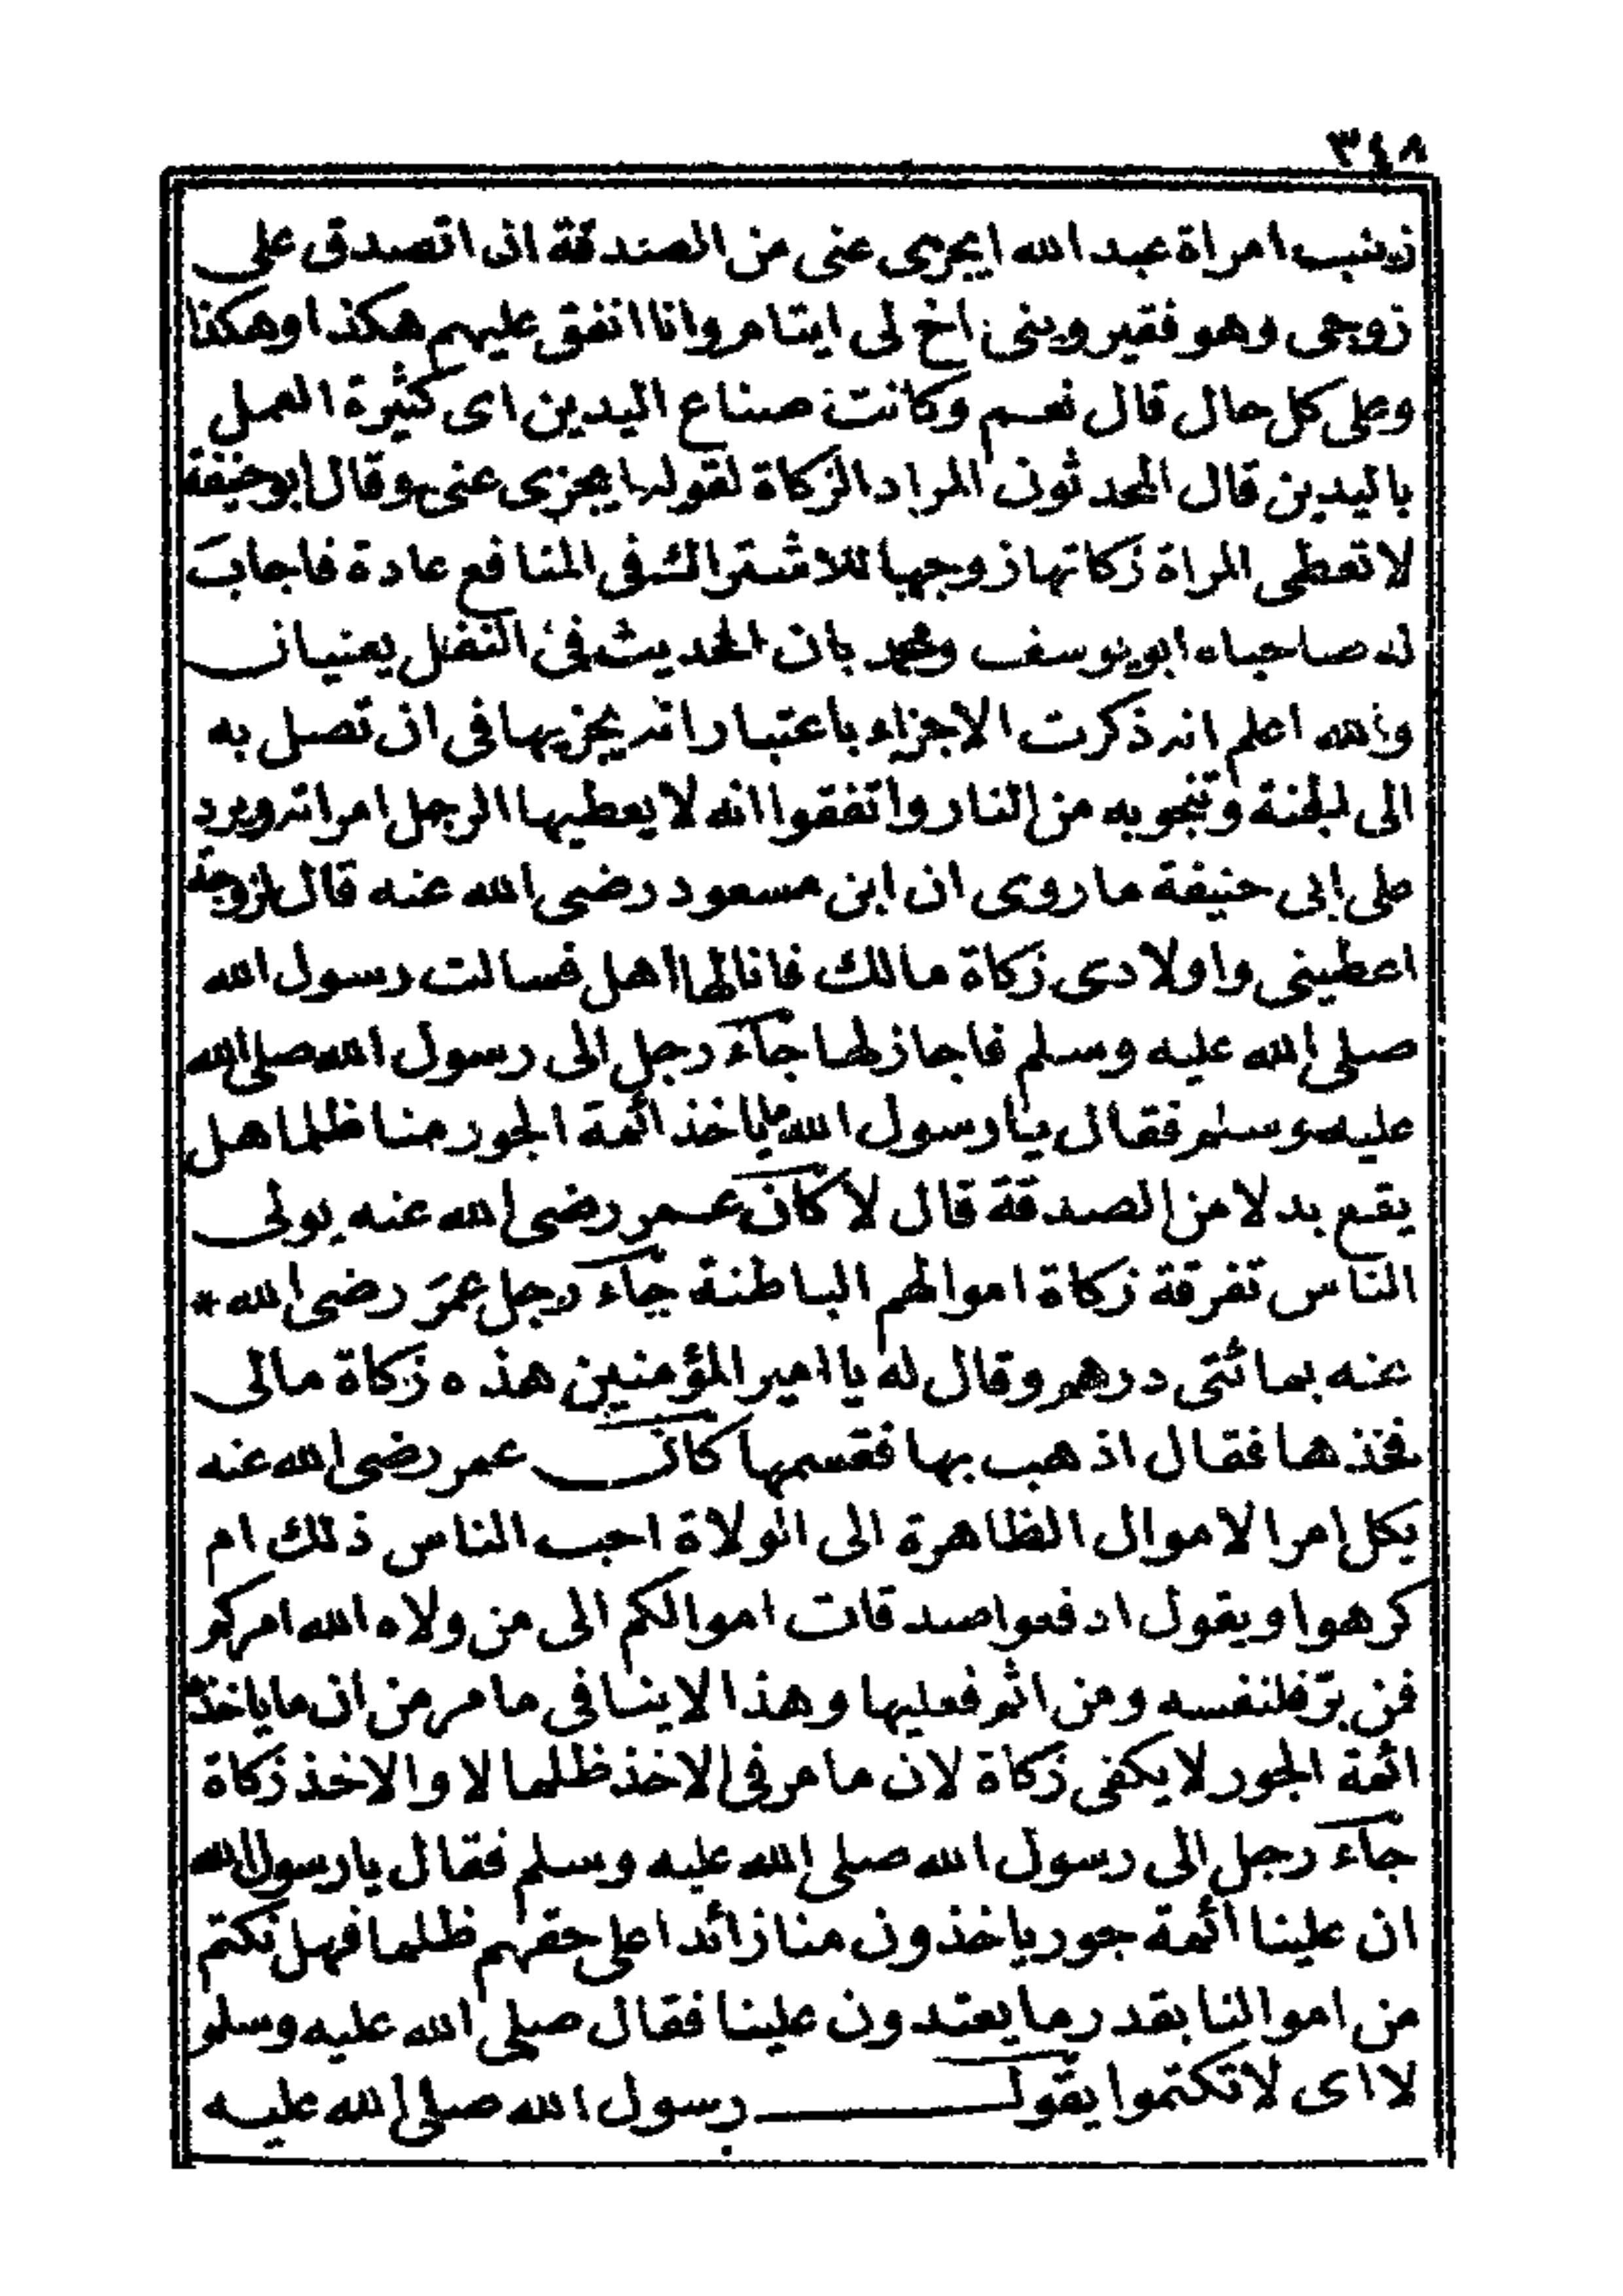 ٣٤٨
زينب امراة عبد الله ايجزى عنى من الصدقة ان اتصدق على
زوجى وهو فقير وبنى اخ لى ايتام وانا انفق عليهم هكذا وهكذا
وعلى كل حال قال نعم وكانت صناع اليدين اى كثيرة العمل
باليدين قال المحدثون المراد الزكاة لقولها يجزى عنى وقال ابو حنيفة
لا تعطى المراة زكاتها زوجها للاشتراك فى المنافع عادة فاجاب
له صاحباه ابو يوسف ومحمد بان الحديث فى النفل يعنيان
والله اعلم انه ذكرت الاجزاء باعتبار انه يجزيها فى ان تصل به
الى الجنة وتنجو به من النار واتفقوا انه لا يعطيها الرجل امراته ويرد
على ابى حنيفة ما روى ان ابن مسعود رضى الله عنه قال لزوجته
اعطينى واولادى زكاة مالك فانا لها اهل فسالت رسول الله
صلى الله عليه وسلم فاجاز لها جآء رجل الى رسول الله صلى الله
عليه وسلم فقال يا رسول الله ما ياخذ ائمة الجور منا ظلما هل
يقع بدلا من الصدقة قال لا كان عمر رضى الله عنه يولى
الناس تفرقة زكاة اموالهم الباطنة جآء رجل عمر رضى الله *
عنه بمائتى درهم وقال له يا امير المؤمنين هذه زكاة مالى
فخذها فقال اذهب بها فقسمها كان عمر رضى الله عنه
يكل امر الاموال الظاهرة الى الولاة احب الناس ذلك ام
كرهوا ويقول ادفعوا صدقات اموالكم الى من ولاه الله امركم
فمن برّ فلنفسه ومن اثم فعليها وهذا لا ينافى ما مر من ان ما ياخذه
ائمة الجور لا يكفى زكاة لان ما مر فى الاخذ ظلما لا والاخذ زكاة
جآء رجل الى رسول الله صلى الله عليه وسلم فقال يا رسول الله
ان علينا ائمة جور ياخذون منا زائدا على حقهم ظلما فهل نكتم
من اموالنا بقدر ما يعتدون علينا فقال صلى الله عليه وسلم
لا اى لا تكتموا يقول رسول الله صلى الله عليه